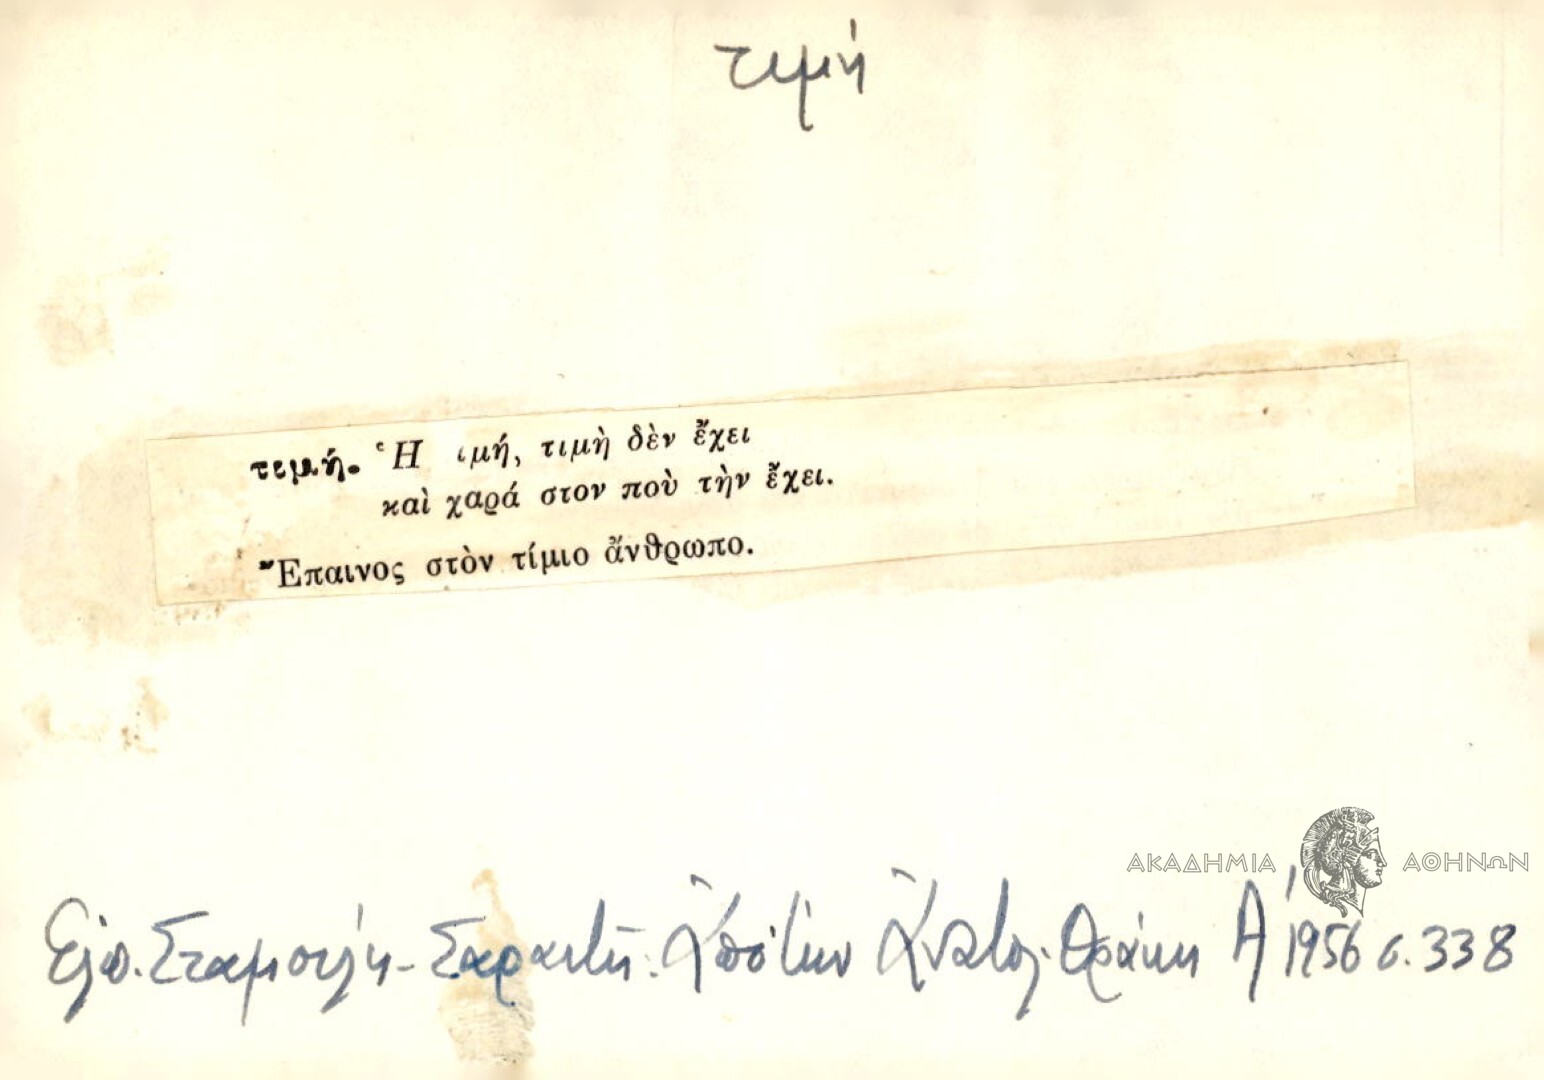 τιμή
τιμή. Ἡ ιμή, τιμὴ δὲν ἔχει
καὶ χαρά στον ποὺ τὴν ἔχει.
Ἔπαινος στὸν τίμιο ἄνθρωπο.
ΑΚΑΔΗΜΙΑ ΑΘΗΝΩΝ
Ἐλπ. Σταμούλη-Σαραντῆ: Ἀπὸ τὴν Ἀνατολ. Θράκη Α' 1956 σ. 338